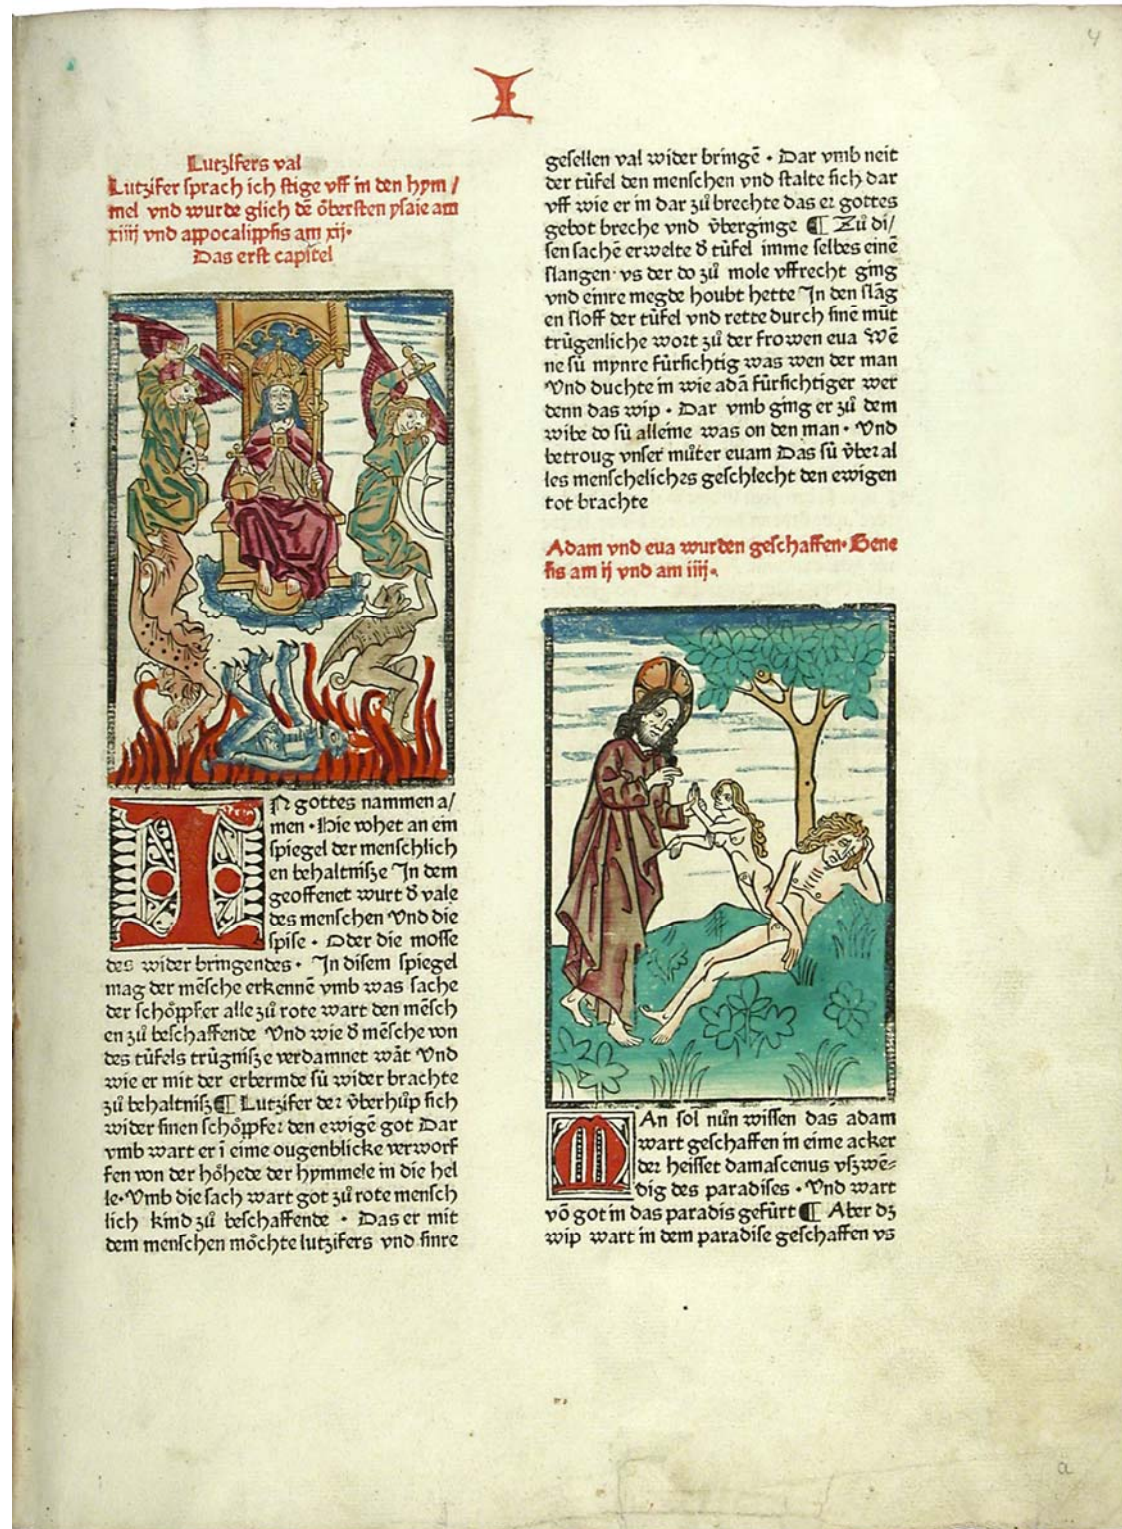 I
4
Lutzifers val
Lutzifer sprach ich stige vff in den hym /
mel vnd wurde glich dē öbersten ysaie am
xiiij vnd appocalippsis am xij·
Das erst capitel
IN gottes nammen a/
men · Hie vohet an ein
spiegel der menschlich
en behaltnisze In dem
geoffenet wurt d̄ vale
des menschen Vnd die
spise · Oder die mosse
des wider bringendes · In disem spiegel
mag der mēsche erkennē vmb was sache
der schöppfer alle zů rote wart den mēsch
en zů beschaffende Vnd wie d̄ mēsche von
des tüfels trügnisze verdamnet wāt Vnd
wie er mit der erbermde sü wider brachte
zů behaltnisz ¶ Lutzifer der v̈berhůp sich
wider sinen schöppfer den ewigē got Dar
vmb wart er ī eime ougenblicke verworf
fen von der höhede der hymmele in die hel
le· Vmb die sach wart got zů rote mensch
lich kind zů beschaffende · Das er mit
dem menschen möchte lutzifers vnd sinre
gesellen val wider bringē · Dar vmb neit
der tüfel den menschen vnd stalte sich dar
vff wie er in dar zů brechte das er gottes
gebot breche vnd v̈berginge ¶ Zů di/
sen sachē erwelte d̄ tüfel imme selbes einē
slangen· vs der do zů mole vffrecht ging
vnd einre megde houbt hette In den slāg
en sloff der tüfel vnd rette durch sinē mūt
trügenliche wort zů der frowen eua Wē
ne sü mynre fürsichtig was wen der man
Vnd duchte in wie adā fürsichtiger wer
denn das wip · Dar vmb ging er zů dem
wibe do sü alleine was on den man · Vnd
betroug vnser můter euam Das sü v̈ber al
les menscheliches geschlecht den ewigen
tot brachte
Adam vnd eua wurden geschaffen· Gene
sis am ij vnd am iiij·
MAn sol nůn wissen das adam
wart geschaffen in eime acker
der heisset damascenus vszwē=
dig des paradises · Vnd wart
vō got in das paradis gefürt ¶ Aber dz
wip wart in dem paradise geschaffen vs
a